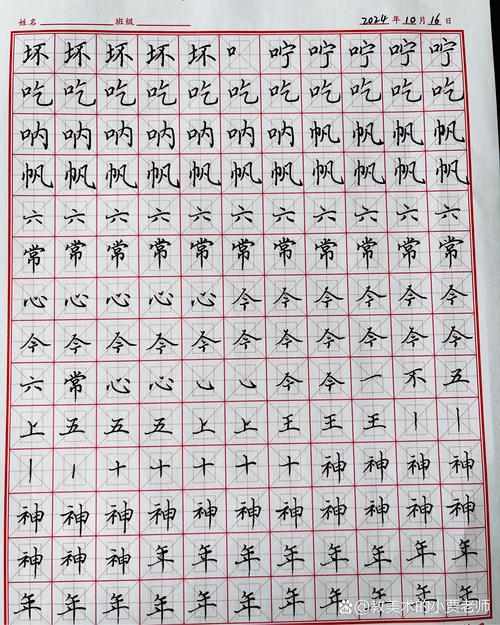 姓名 班级 2024年10月16日
坏坏坏坏坏口咛咛咛咛咛
吃吃吃吃吃吃吃吃吃吃吃
呐呐呐呐呐呐呐帆帆帆帆
帆帆帆帆帆帆帆帆帆帆帆
六六六六六六六六六六六
常常常常常常常常常常常
心心心心心今今今今今今
今今今今今今今今今今今
六常心心乚乚今今一不五
上五五五上上王王王丨丨
丨丨十十十十十神神神神
神神神神神神神神神神神
神神神年年年年年年年年
年年年年年年年年
@教美术的小贾老师